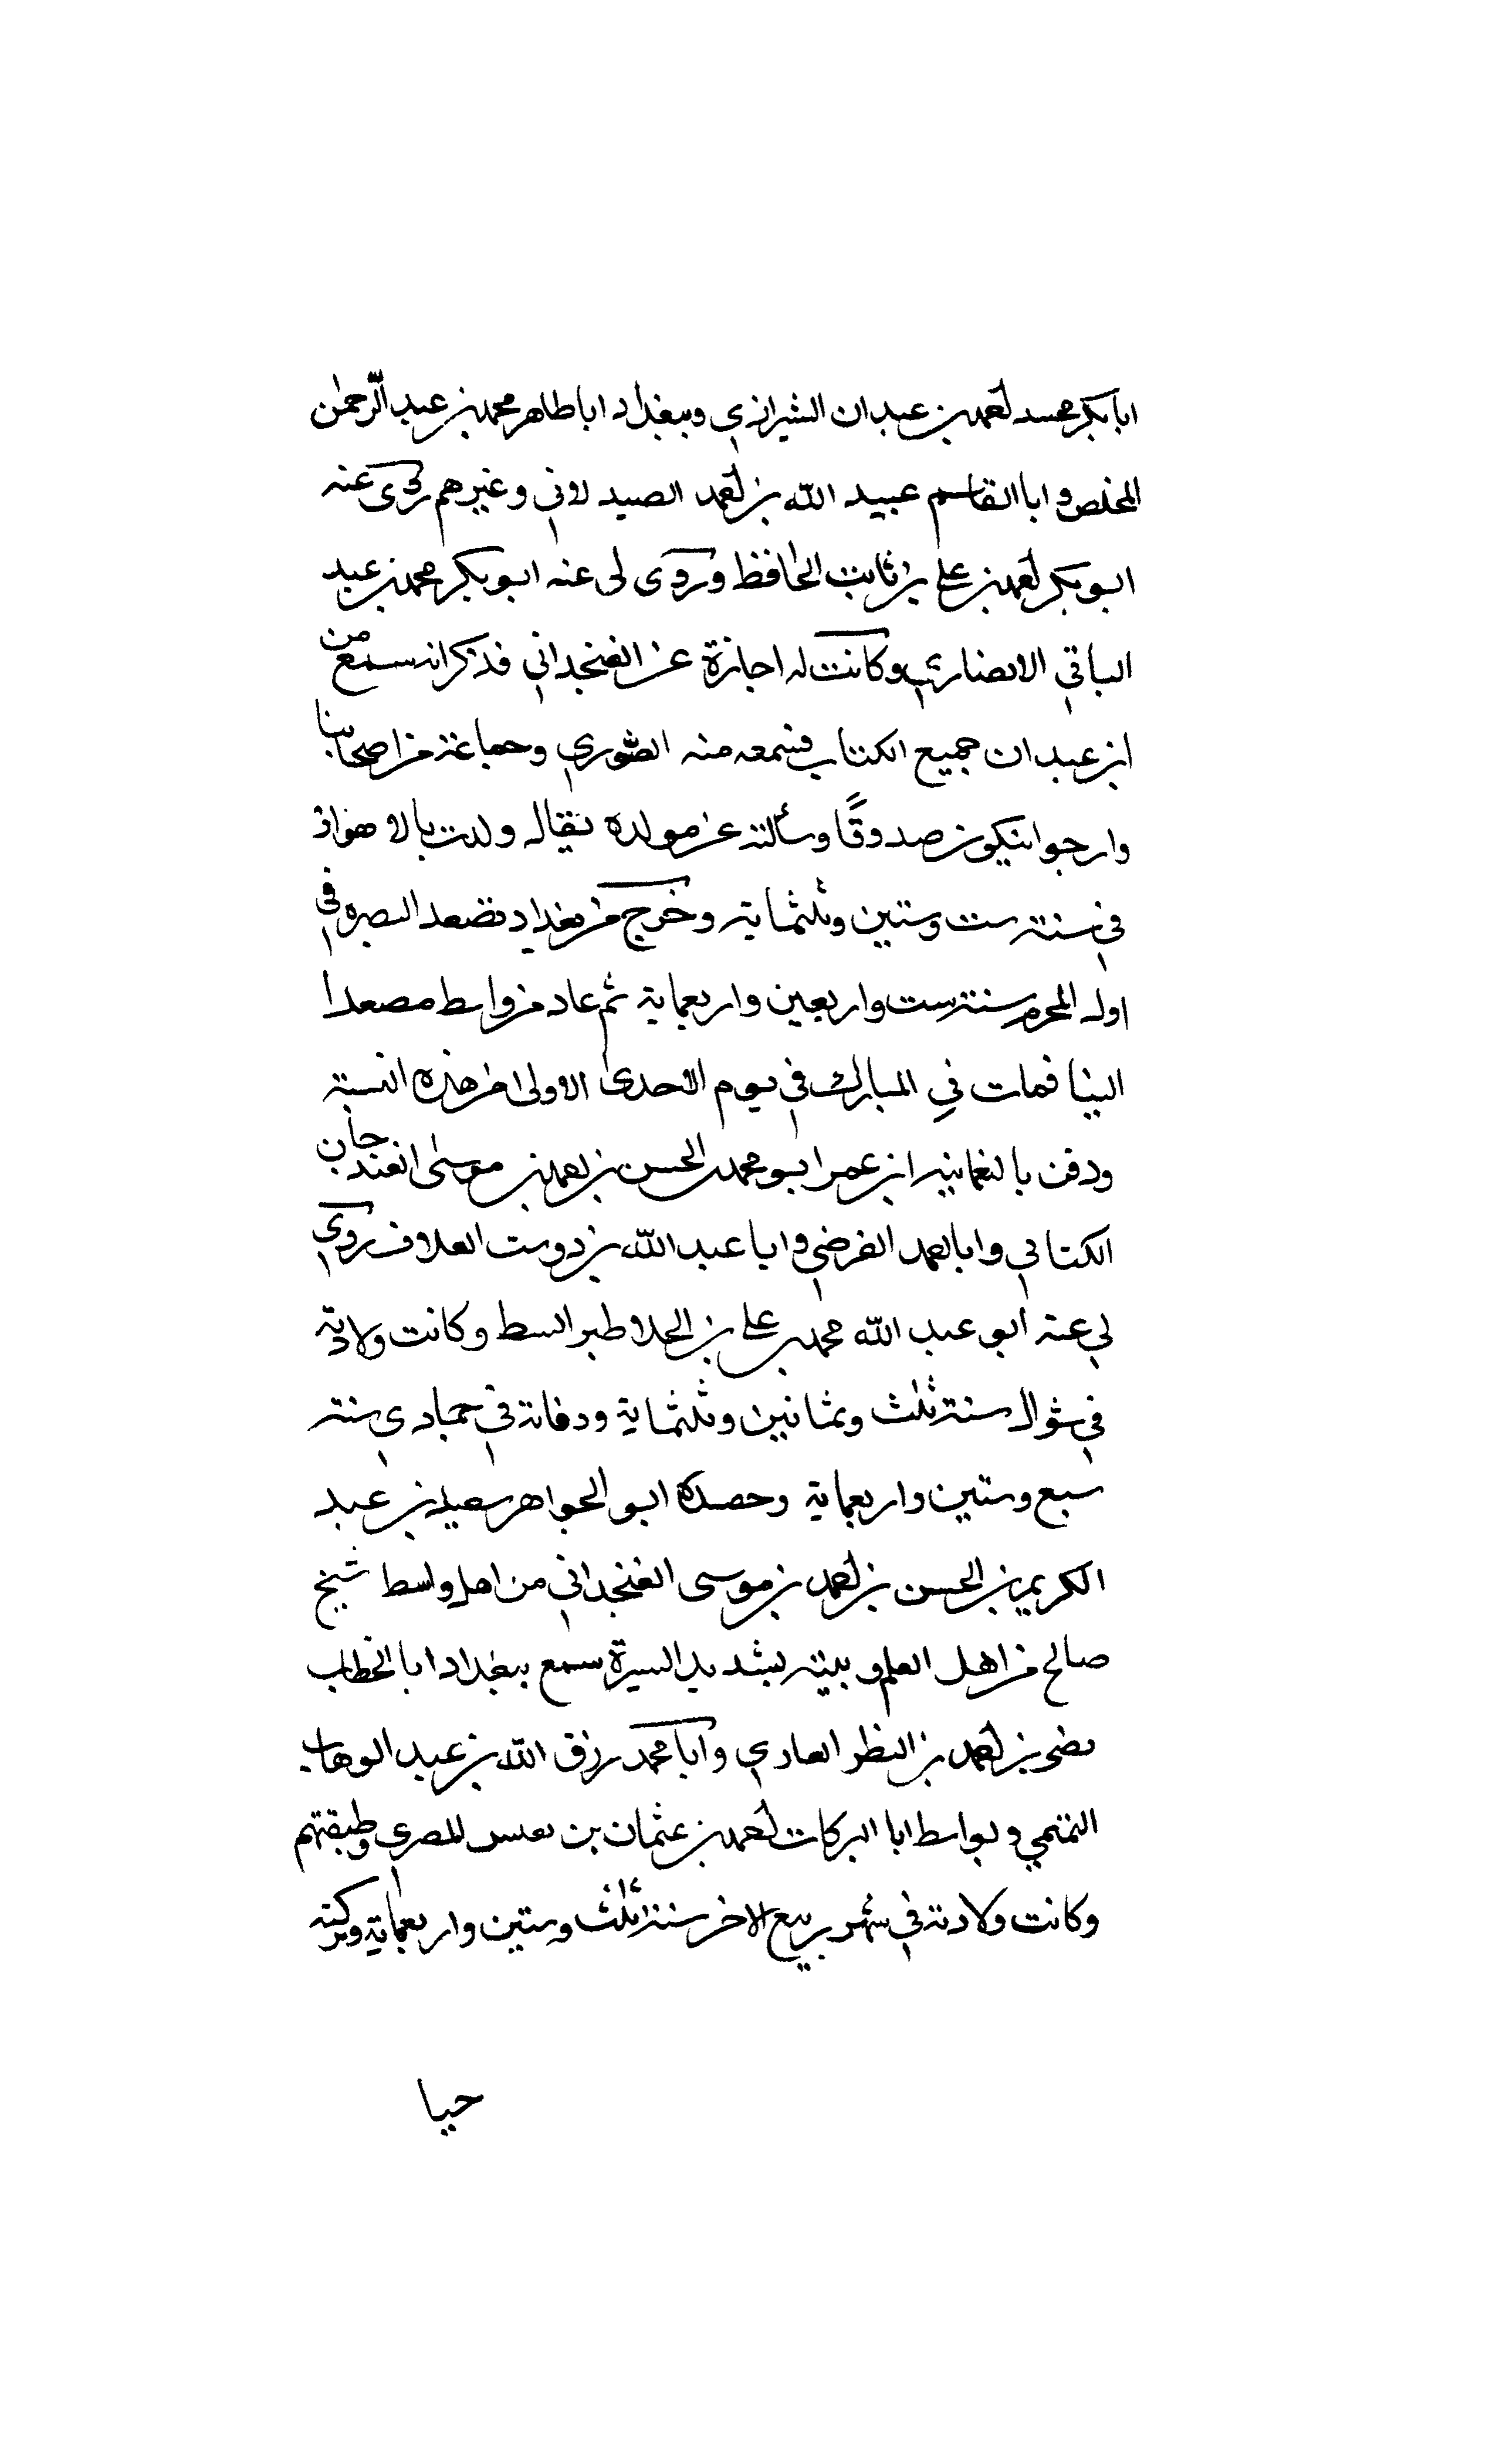 ابابكر محمد احمد بن عبدان الشيرازي وببغداد اباطاهر محمد بن عبد الرحمن
المخلص و ابا القاسم عبيد الله بن احمد الصيدلاوني وغيرهم روى عنه
ابوبكر احمد بن علي بن ثابت الحافظ وروى لى عنه ابو بكر محمد بن عبد
الباقي الانصاري وكانت له اجازة عن الغنجداني فذكر انه سمع من
ابن عبدان جميع الكتاب فسمعه منه الصوري وجماعة من اصحابنا
وارجوا ان يكون صدوقًا وسألته عن مولده فقال ولدت بالاهواز
في سنة ست وستين وثلثماية وخرج من بغداد تصعد البصره في
اول المحرم سنة ست واربعين واربعماية ثم عاد من واسط مصعدا
الينا فمات في المبارك في يوم الاحدى الاولى من هذه السنة
ودفن بالنعمانية ابن عمر ابو محمد الحسن بن احمد بن موسى الغندجان
الكتاني وابا احمد الفرضي و ابا عبد الله بن دوست العلاف روى
لي عنه ابو عبد الله محمد بن علي بن الجلا وكانت ولادته
في شوال سنة ثلث وثمانين وثلثماية ووفاته في جمادى سنة
سبع وستين واربعماية وحفيده ابو الجواهر سعيد بن عبد
الكريم بن الحسن بن احمد بن موسى الغنجداني من اهل واسط شيخ
صالح من اهل العلم و بيته السيرة سمع ببغداد ابا الخطاب
بن احمد بن النظر وابا محمد رزق الله بن عبد الوهاب
التميمي وبواسط ابا البركات احمد بن عثمان بن المصري وطبقتهم
وكانت ولادته في شهر ربيع الاخر سنة ثلث وستين واربعماية وتركته
حيا